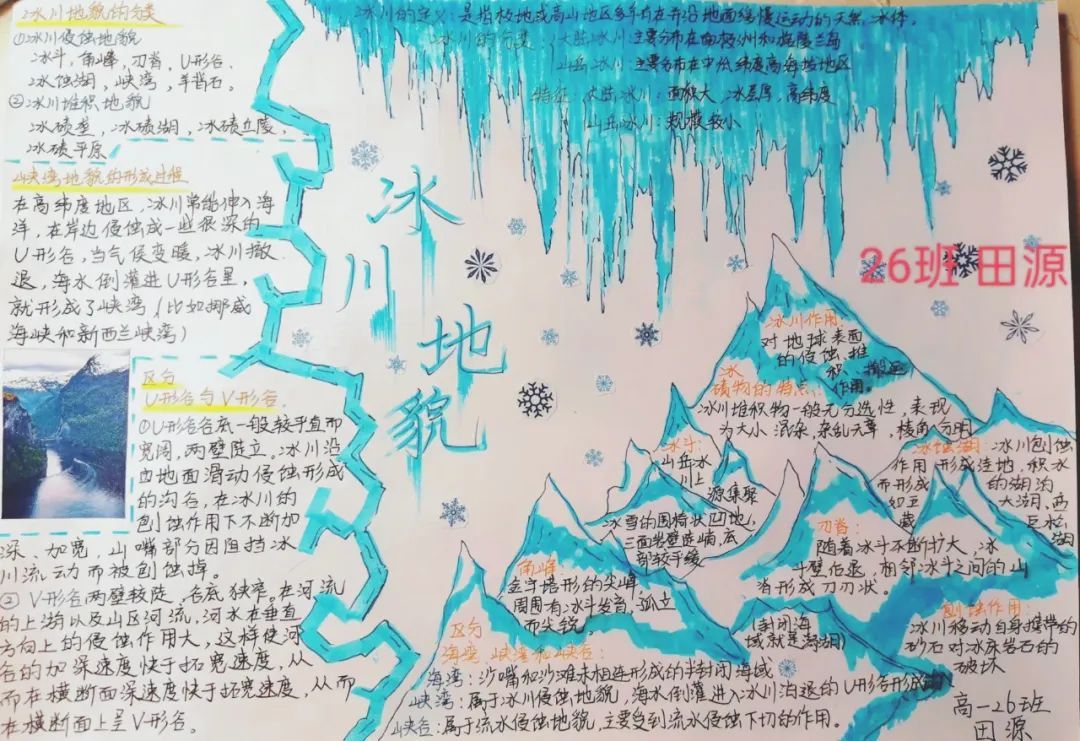 冰川地貌的分类
①冰川侵蚀地貌
冰斗，角峰，刃脊，U形谷，
冰蚀湖，峡湾，羊背石。
②冰川堆积地貌
冰碛垄，冰碛湖，冰碛丘陵，
冰碛平原
峡湾地貌的形成过程
在高纬度地区，冰川常能伸入海
洋，在岸边侵蚀成一些很深的
U形谷，当气候变暖，冰川撤
退，海水倒灌进U形谷里，
就形成了峡湾（比如挪威
海峡和新西兰峡湾）
区分
U形谷与V形谷。
①U形谷谷底一般较平直而
宽阔，两壁陡立。冰川沿
凹地面滑动侵蚀形成
的沟谷，在冰川的
刨蚀作用下不断加
深、加宽，山嘴部分因阻挡冰
川流动而被刨蚀掉。
②V形谷两壁较陡，谷底狭窄。在河流
的上游以及山区河流，河水在垂直
方向上的侵蚀作用大，这样使河
谷的加深速度快于拓宽速度，从
而在横断面深速度快于拓宽速度，从而
在横断面上呈V形谷。
冰川的定义：是指极地或高山地区多年存在并沿地面缓慢运动的天然冰体。
冰川的分类：大陆冰川主要分布在南极洲和格陵兰岛
山岳冰川：主要分布在中低纬度高海拔地区
特征：大陆冰川：面积大，冰层厚，高纬度
山岳冰川：规模较小
冰川地貌
26班 田源
冰川作用：
对地球表面
的侵蚀、搬运
积、作用。
冰
碛物的特点：
冰川堆积物一般无分选性，表现
为大小混杂，杂乱无章，棱角分明
冰斗：
山岳冰
川上源集聚
冰雪的围椅状凹地，
三面岩壁陡峭，底
部较平缓
冰蚀湖：冰川刨蚀
作用形成洼地，积水
而形成的湖泊
刃脊：
随着冰斗不断扩大，冰
斗壁后退，相邻冰斗之间的山
脊形成刀刃状。
角峰
金字塔形的尖峰，
周围有冰斗发育，孤立
而尖锐，
刨蚀作用：
冰川移动自身携带的
砂石对冰床岩石的
破坏
区分
海湾，峡湾和峡谷：
(封闭海
域就是潟湖)
海湾：沙嘴和沙滩未相连形成的半封闭海域
峡湾：属于冰川侵蚀地貌，海水倒灌进入冰川后退的U形谷形成
峡谷：属于流水侵蚀地貌，主要受到流水侵蚀下切的作用。
高一26班
田源